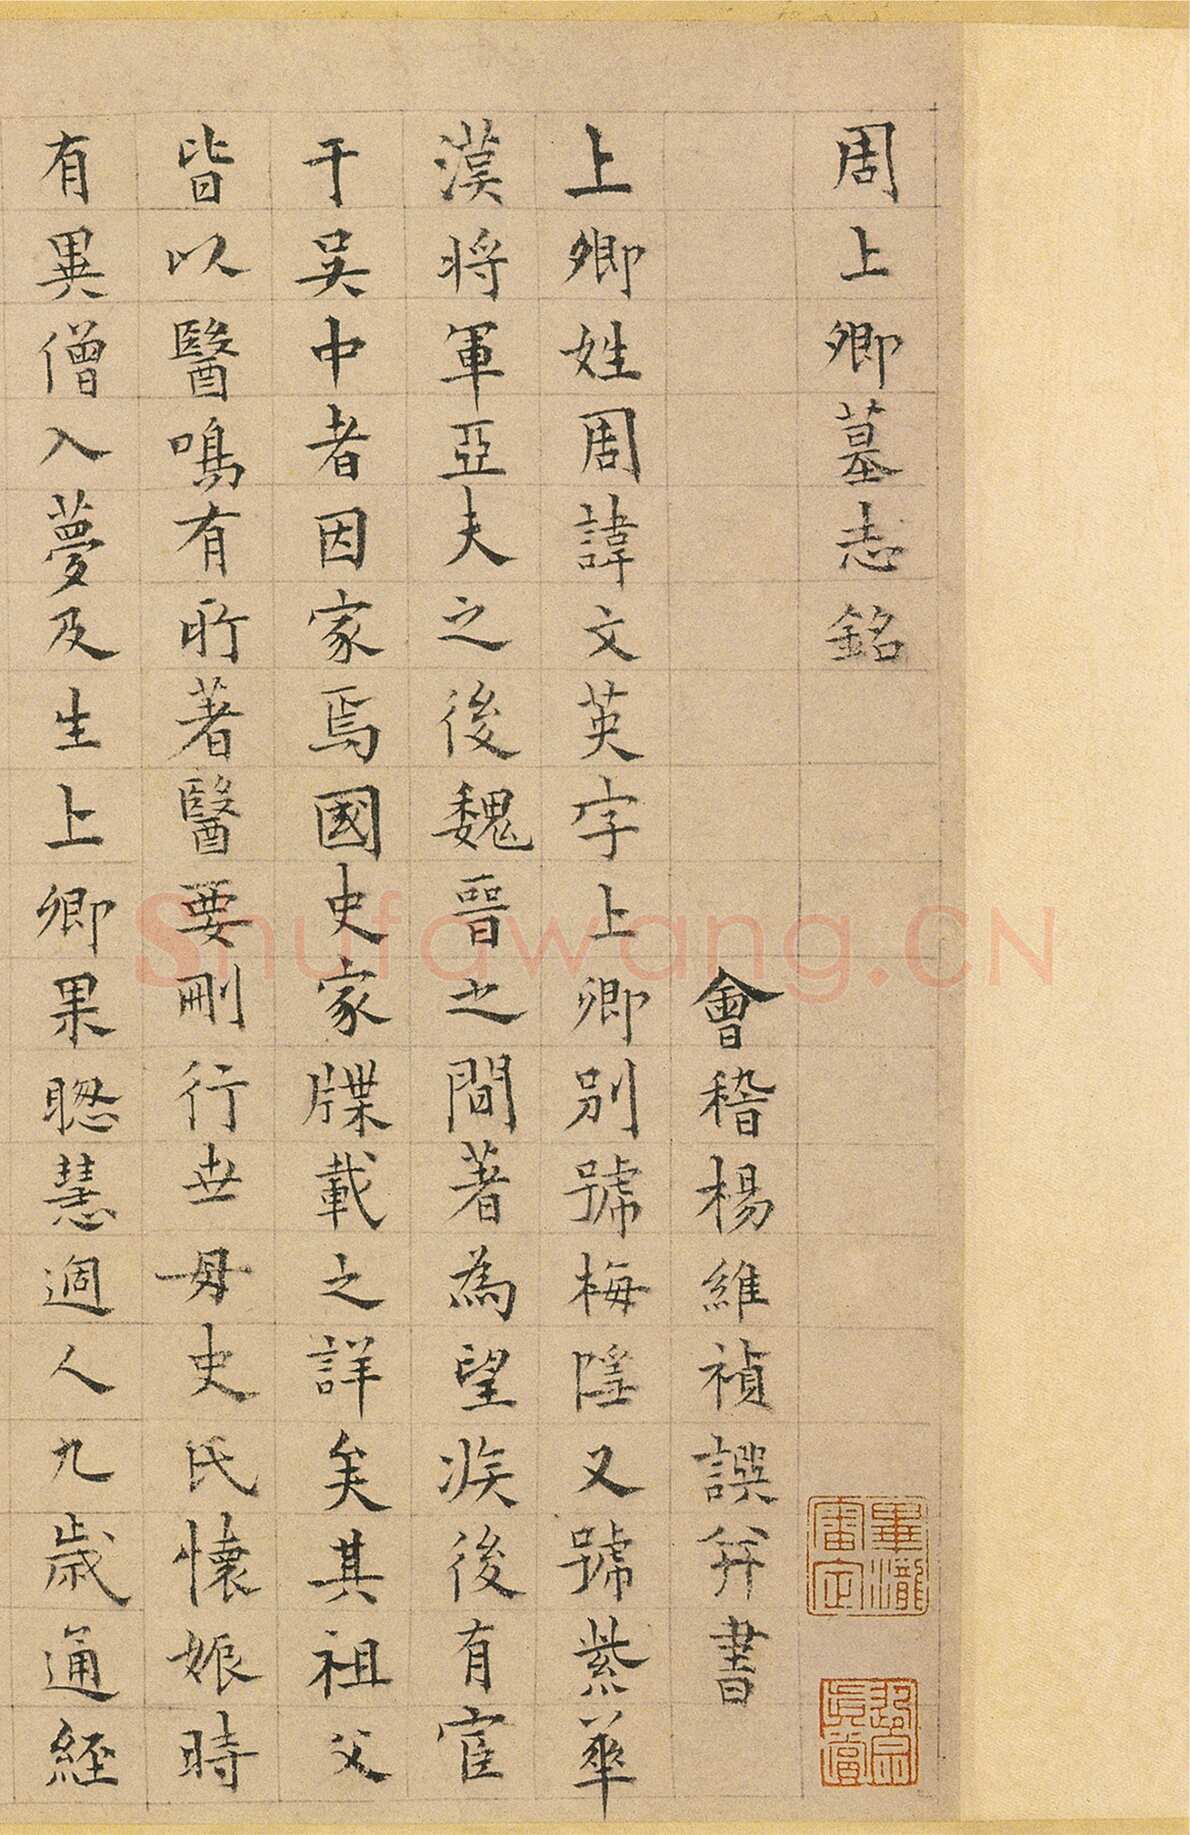 周上卿墓志銘
會稽楊維禎譔并書
上卿姓周諱文英字上卿別號梅隱又號紫華
漢將軍亞夫之後魏晉之間著為望族後有宦
于吳中者因家焉國史家牒載之詳矣其祖父
皆以醫鳴有所著醫要刪行世母史氏懷娠時
有異僧入夢及生上卿果聰慧過人九歲通經
畢瀧審定
Shufawang.CN